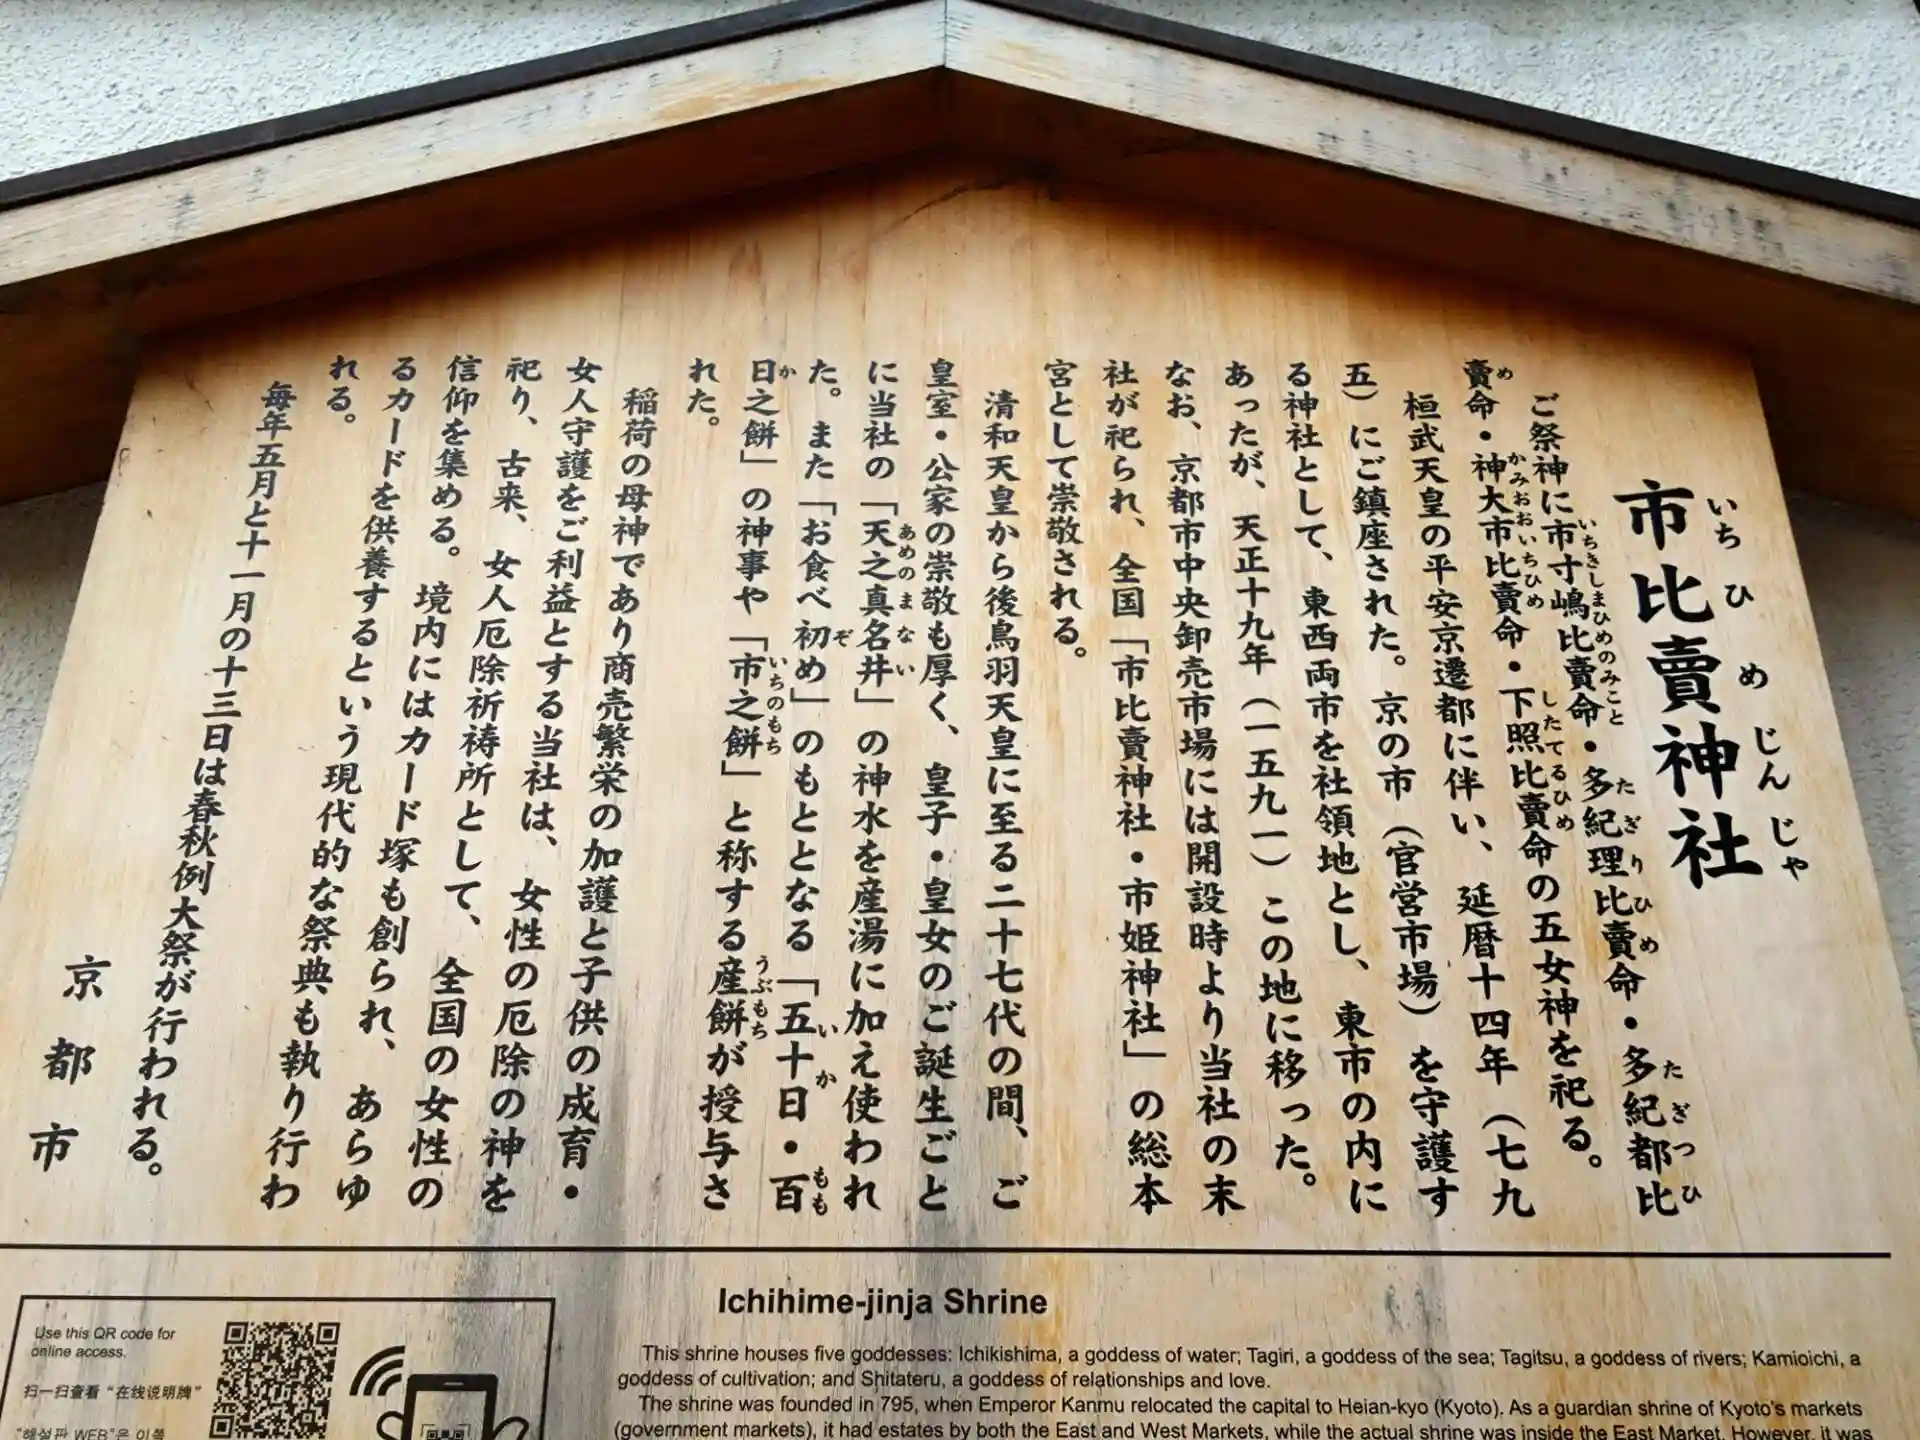 市比賣神社
いちひめじんじゃ
ご祭神に市寸嶋比賣命・多紀理比賣命・多紀都比
いちきしまひめのみこと
たぎりひめ
たぎつひ
賣命・神大市比賣命・下照比賣命の五女神を祀る。
め
かみおおいちひめ
したてるひめ
桓武天皇の平安京遷都に伴い、延暦十四年（七九
五）にご鎮座された。京の市（官営市場）を守護す
る神社として、東西両市を社領地とし、東市の内に
あったが、天正十九年（一五九一）この地に移った。
なお、京都市中央卸売市場には開設時より当社の末
社が祀られ、全国「市比賣神社・市姫神社」の総本
宮として崇敬される。
清和天皇から後鳥羽天皇に至る二十七代の間、ご
皇室・公家の崇敬も厚く、皇子・皇女のご誕生ごと
に当社の「天之真名井」の神水を産湯に加え使われ
あめのまない
た。また「お食べ初め」のもととなる「五十日・百
ぞ
いか
もも
日之餅」の神事や「市之餅」と称する産餅が授与さ
か
いちのもち
うぶもち
れた。
稲荷の母神であり商売繁栄の加護と子供の成育・
女人守護をご利益とする当社は、女性の厄除の神を
祀り、古来、女人厄除祈祷所として、全国の女性の
信仰を集める。境内にはカード塚も創られ、あらゆ
るカードを供養するという現代的な祭典も執り行わ
れる。
毎年五月と十一月の十三日は春秋例大祭が行われる。
京都市
Ichihime-jinja Shrine
This shrine houses five goddesses: Ichikishima, a goddess of water; Tagiri, a goddess of the sea; Tagitsu, a goddess of rivers; Kamioichi, a
goddess of cultivation; and Shitateru, a goddess of relationships and love.
The shrine was founded in 795, when Emperor Kanmu relocated the capital to Heian-kyo (Kyoto). As a guardian shrine of Kyoto's markets
(government markets), it had estates by both the East and West Markets, while the actual shrine was inside the East Market. However, it was
Use this QR code for
online access.
扫一扫查看“在线说明牌”
"해설판 WEB"은 이쪽